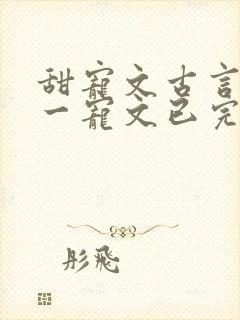 甜寵文古言
一寵文已完
彤飛